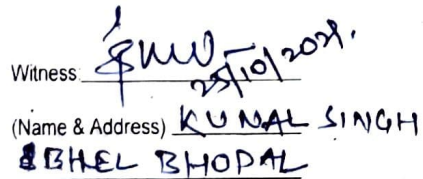 Witness:
25/10/2021.
(Name & Address) KUNAL SINGH
BHEL BHOPAL